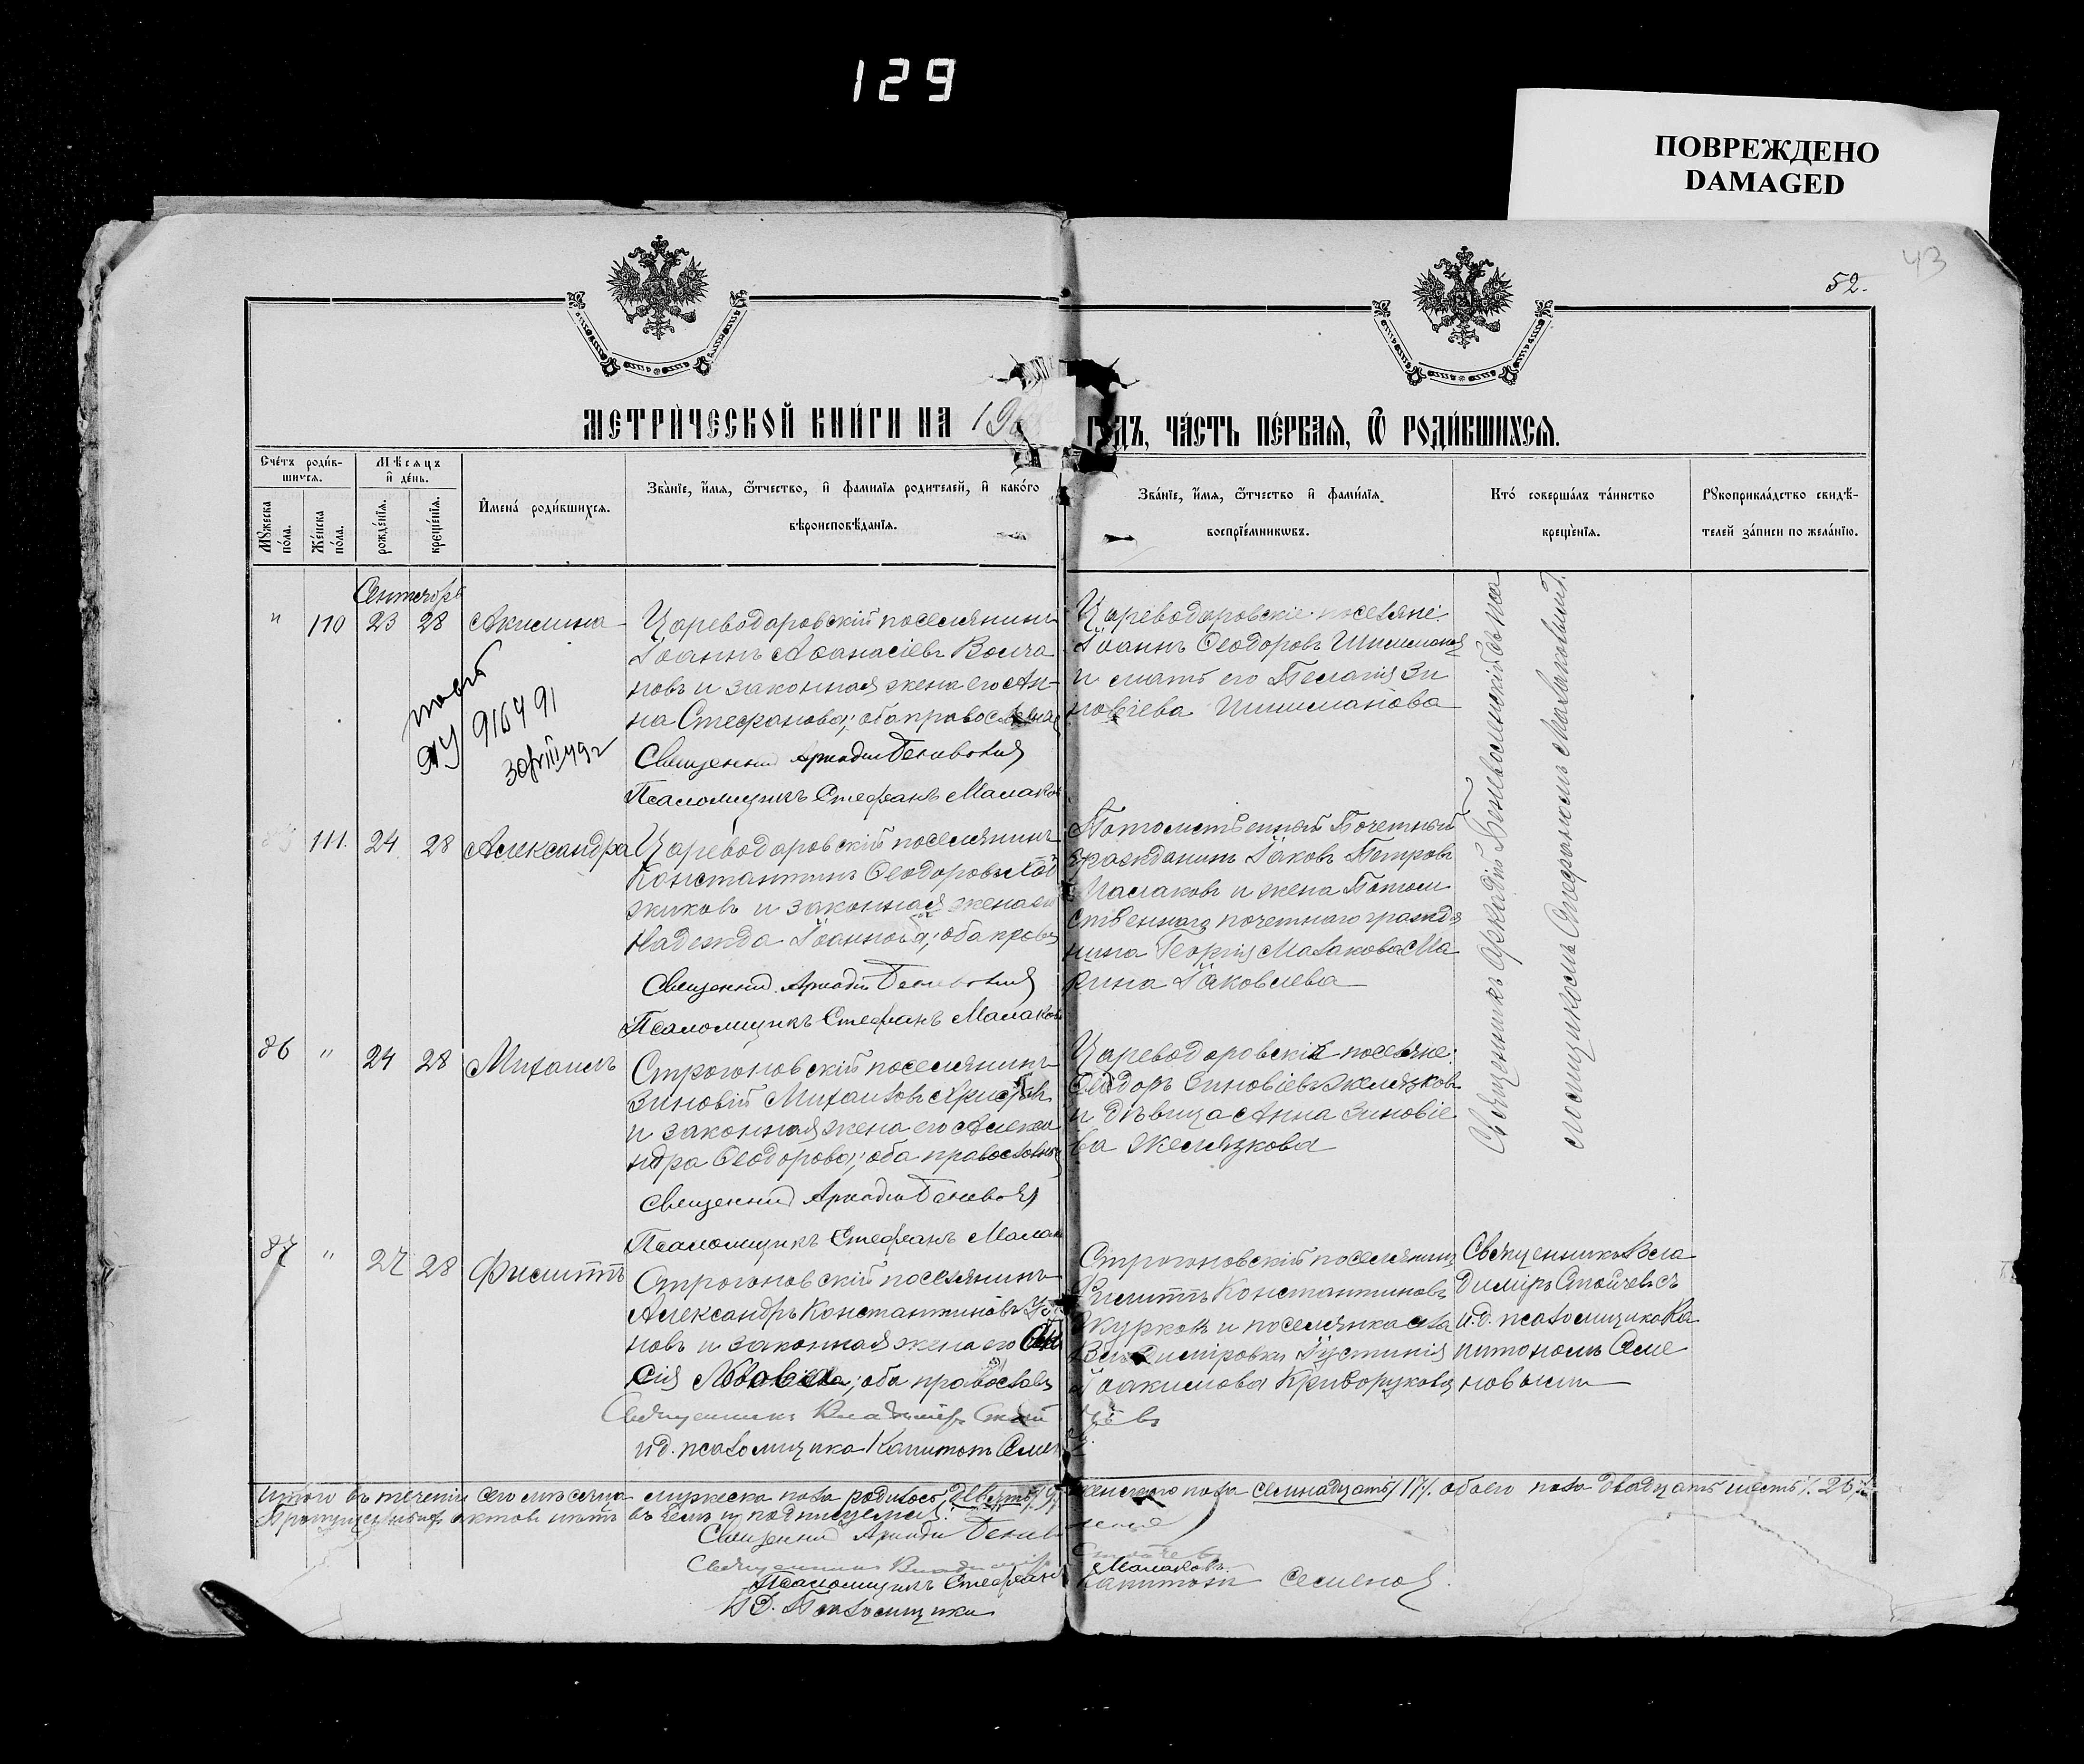 129
ПОВРЕЖДЕНО
DAMAGED
43
52.
МЕТРИЧЕСКОЙ КНИГИ НА 19
ГОДЪ, ЧАСТЬ ПЕРВАЯ, Ѿ РОДИВШИХСЯ.
Счетъ родив-
шихся.
Мѣсяцъ
и день.
Мужеска
пола.
Женска
пола.
рожденїя.
крещенїя.
Имена родившихся.
Званїе, имя, ѿчество, и фамилїя родителей, и какого
вѣроисповѣданїя.
Званїе, имя, ѿчество и фамилїя
воспрїемниковъ.
Кто совершалъ таинство
крещенїя.
Рукоприкладство свидѣ-
телей записи по желанїю.
Сентябрь
" 110 23 28 Акилина
Цареводаровскій поселянинъ
Іоаннъ Аѳанасіевъ Волча
новъ и законная жена его Ан-
на Стефанова; оба
Священник Аркадій
Псаломщикъ Стефанъ Малаков
Цареводаровскіе поселяне:
Іоаннъ Ѳеодоровъ Шишманов
и мать его Пелагія Зи
новіева Шишманова
916491
111. 24 28 Александра
Цареводаровскій поселянинъ
Константинъ Ѳеодоровъ
жиковъ и законная жена его
Надежда Іоаннова; оба прав
Священник Аркадій
Псаломщикъ Стефанъ Малаков
Потомственный Почетный
гражданинъ Іаковъ Петровъ
Малаковъ и жена Потом
ственнаго почетнаго гражда
нина Георгія Малакова Ма
рина Іаковлева
86 " 24 28 Михаилъ
Строгоновскій поселянинъ
Зиновій Михаиловъ
и законная жена его Алекса
ндра Ѳеодорова; оба православн
Священник Аркадій
Псаломщикъ Стефанъ Малак
Цареводаровскіе поселяне:
Ѳеодоръ Зиновіевъ Желязков
и дѣвица Анна Зиновіе
ва Желязкова
Священникъ Аркадій съ пса
ломщикомъ Стефаномъ Малаковымъ.
87 " 27 28 Филиппъ
Строгоновскій поселянинъ
Александръ Константиновъ
новъ и законная жена его
сія; оба православ
Священникъ Владиміръ Стой
чевъ
и.д. псаломщика Капитонъ Семе
Строгоновскій поселянин
Филиппъ Константиновъ
Журковъ и поселянка села
Владимировки Іустинія
Іоакимова Криворукова
Священникъ Вла
димиръ Стойчевъ съ
и.д. псаломщика Ка
питономъ Семе
новымъ
Итого въ теченіи сего мѣсяца мужеска пола родилось девять /9/
женскаго пола семнадцать /17/. обоего пола двадцать шесть /. 26 /.
актовъ нѣтъ въ чемъ и подписуемся:
Священник Аркадій
Священникъ Владимір Стойчевъ
Псаломщикъ Стефанъ Малаковъ
И.Д. Псаломщика Капитонъ Семенов